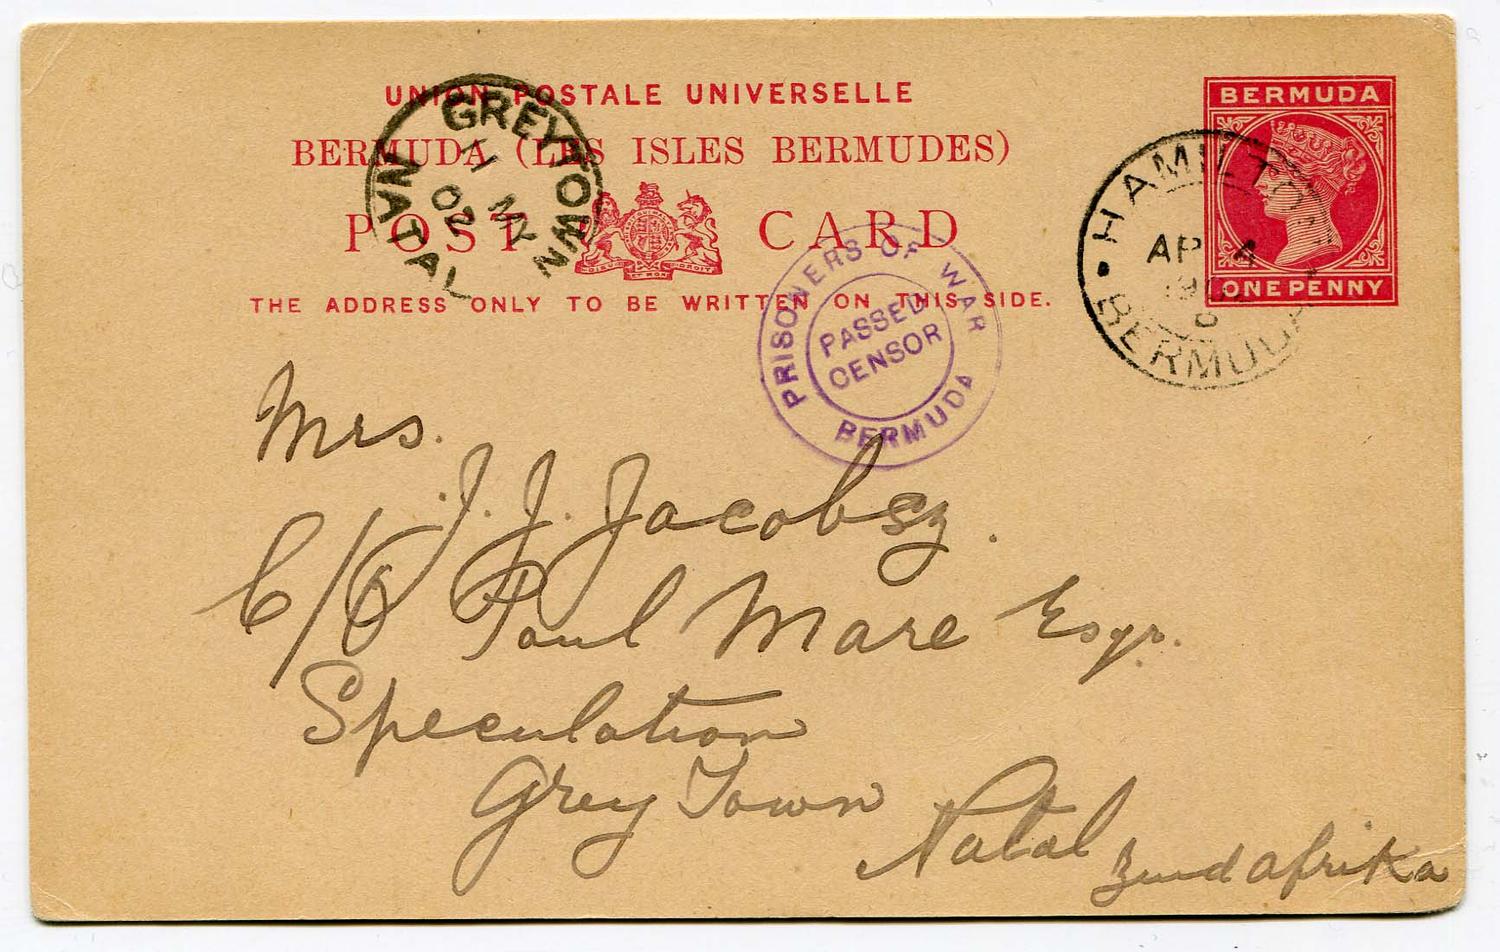 UNION POSTALE UNIVERSELLE
BERMUDA (LES ISLES BERMUDES)
POST CARD
THE ADDRESS ONLY TO BE WRITTEN ON THIS SIDE.
BERMUDA
ONE PENNY
GREYTOWN
NATAL
MY
02
HAMILTON
AP 4
BERMUDA
PRISONERS OF WAR
PASSED
CENSOR
BERMUDA
DIEU ET MON DROIT
Mrs.
J. J. Jacobsz.
C/O Paul Mare Esqr.
Speculation
Grey Town
Natal
Zuid afrika